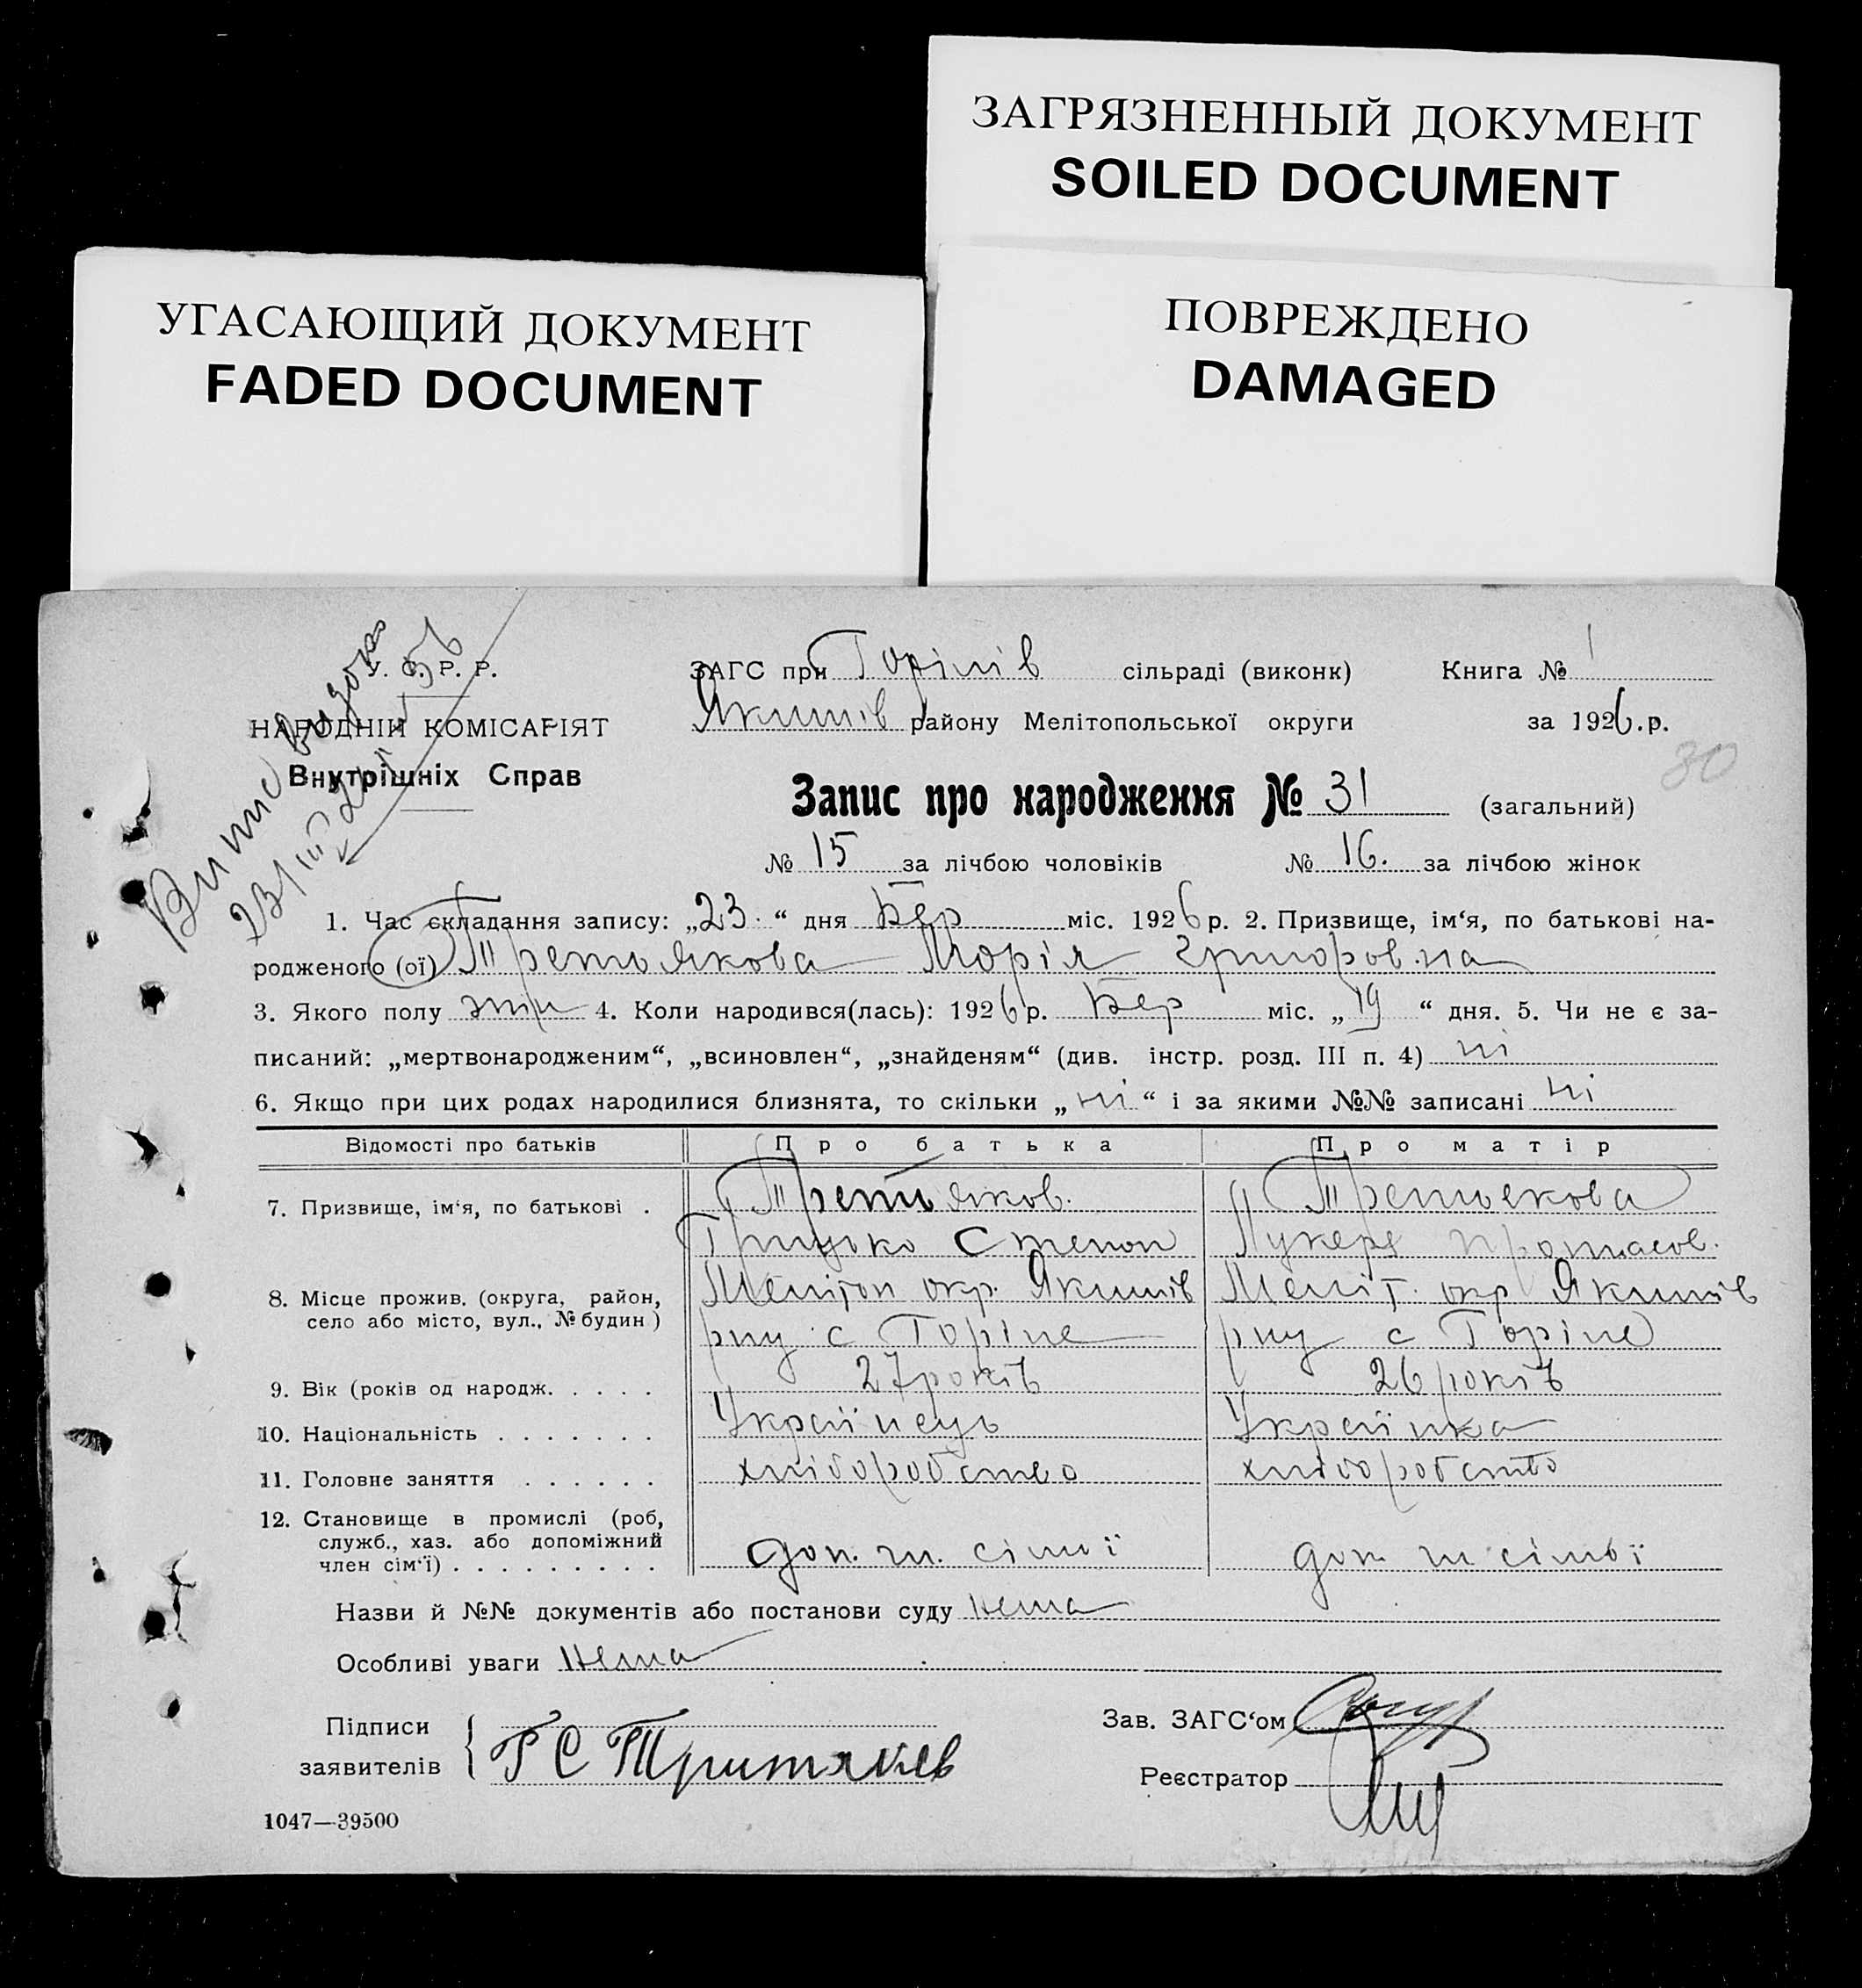 ЗАГРЯЗНЕННЫЙ ДОКУМЕНТ
SOILED DOCUMENT
УГАСАЮЩИЙ ДОКУМЕНТ
FADED DOCUMENT
ПОВРЕЖДЕНО
DAMAGED
У. С. Р. Р.
НАРОДНІЙ КОМІСАРІЯТ
Внутрішніх Справ
23/III
ЗАГС при Горілів сільраді (виконк) Книга № 1
Якимів району Мелітопольської округи за 1926 р.
30
Запис про народження № 31 (загальний)
№ 15 за лічбою чоловіків № 16. за лічбою жінок
1. Час складання запису: „23“ дня Бер міс. 1926 р. 2. Призвище, ім‘я, по батькові на-
родженого (ої) Третьякова Марія Григоровна
3. Якого полу жін 4. Коли народився(лась): 1926 р. Бер міс. „19“ дня. 5. Чи не є за-
писаний: „мертвонародженим“, „всиновлен“, „знайденям“ (див. інстр. розд. III п. 4) ні
6. Якщо при цих родах народилися близнята, то скільки „ні“ і за якими №№ записані ні
Відомості про батьків Про батька Про матір
7. Призвище, ім‘я, по батькові . Третьяков. Третьекова
Грицько Степан Лукеря Протасов.
8. Місце прожив. (округа, район, Мелітоп окр. Якимів Меліт. окр Якимів
село або місто, вул., № будин) рну с Горіле рну с Горіле
9. Вік (років од народж. . . . . 27 років 26 років
10. Національність . . . . . . . Українець Українка
11. Головне заняття . . . . . . хліборобство хліборобство
12. Становище в промислі (роб,
служб., хаз. або допоміжний
член сім‘ї) . . . . . . . . . доп. чл. сімї доп чл сімьї
Назви й №№ документів або постанови суду нема
Особливі уваги нема
Підписи Зав. ЗАГС‘ом
заявителів Г С Тритяков
Реєстратор
1047—39500